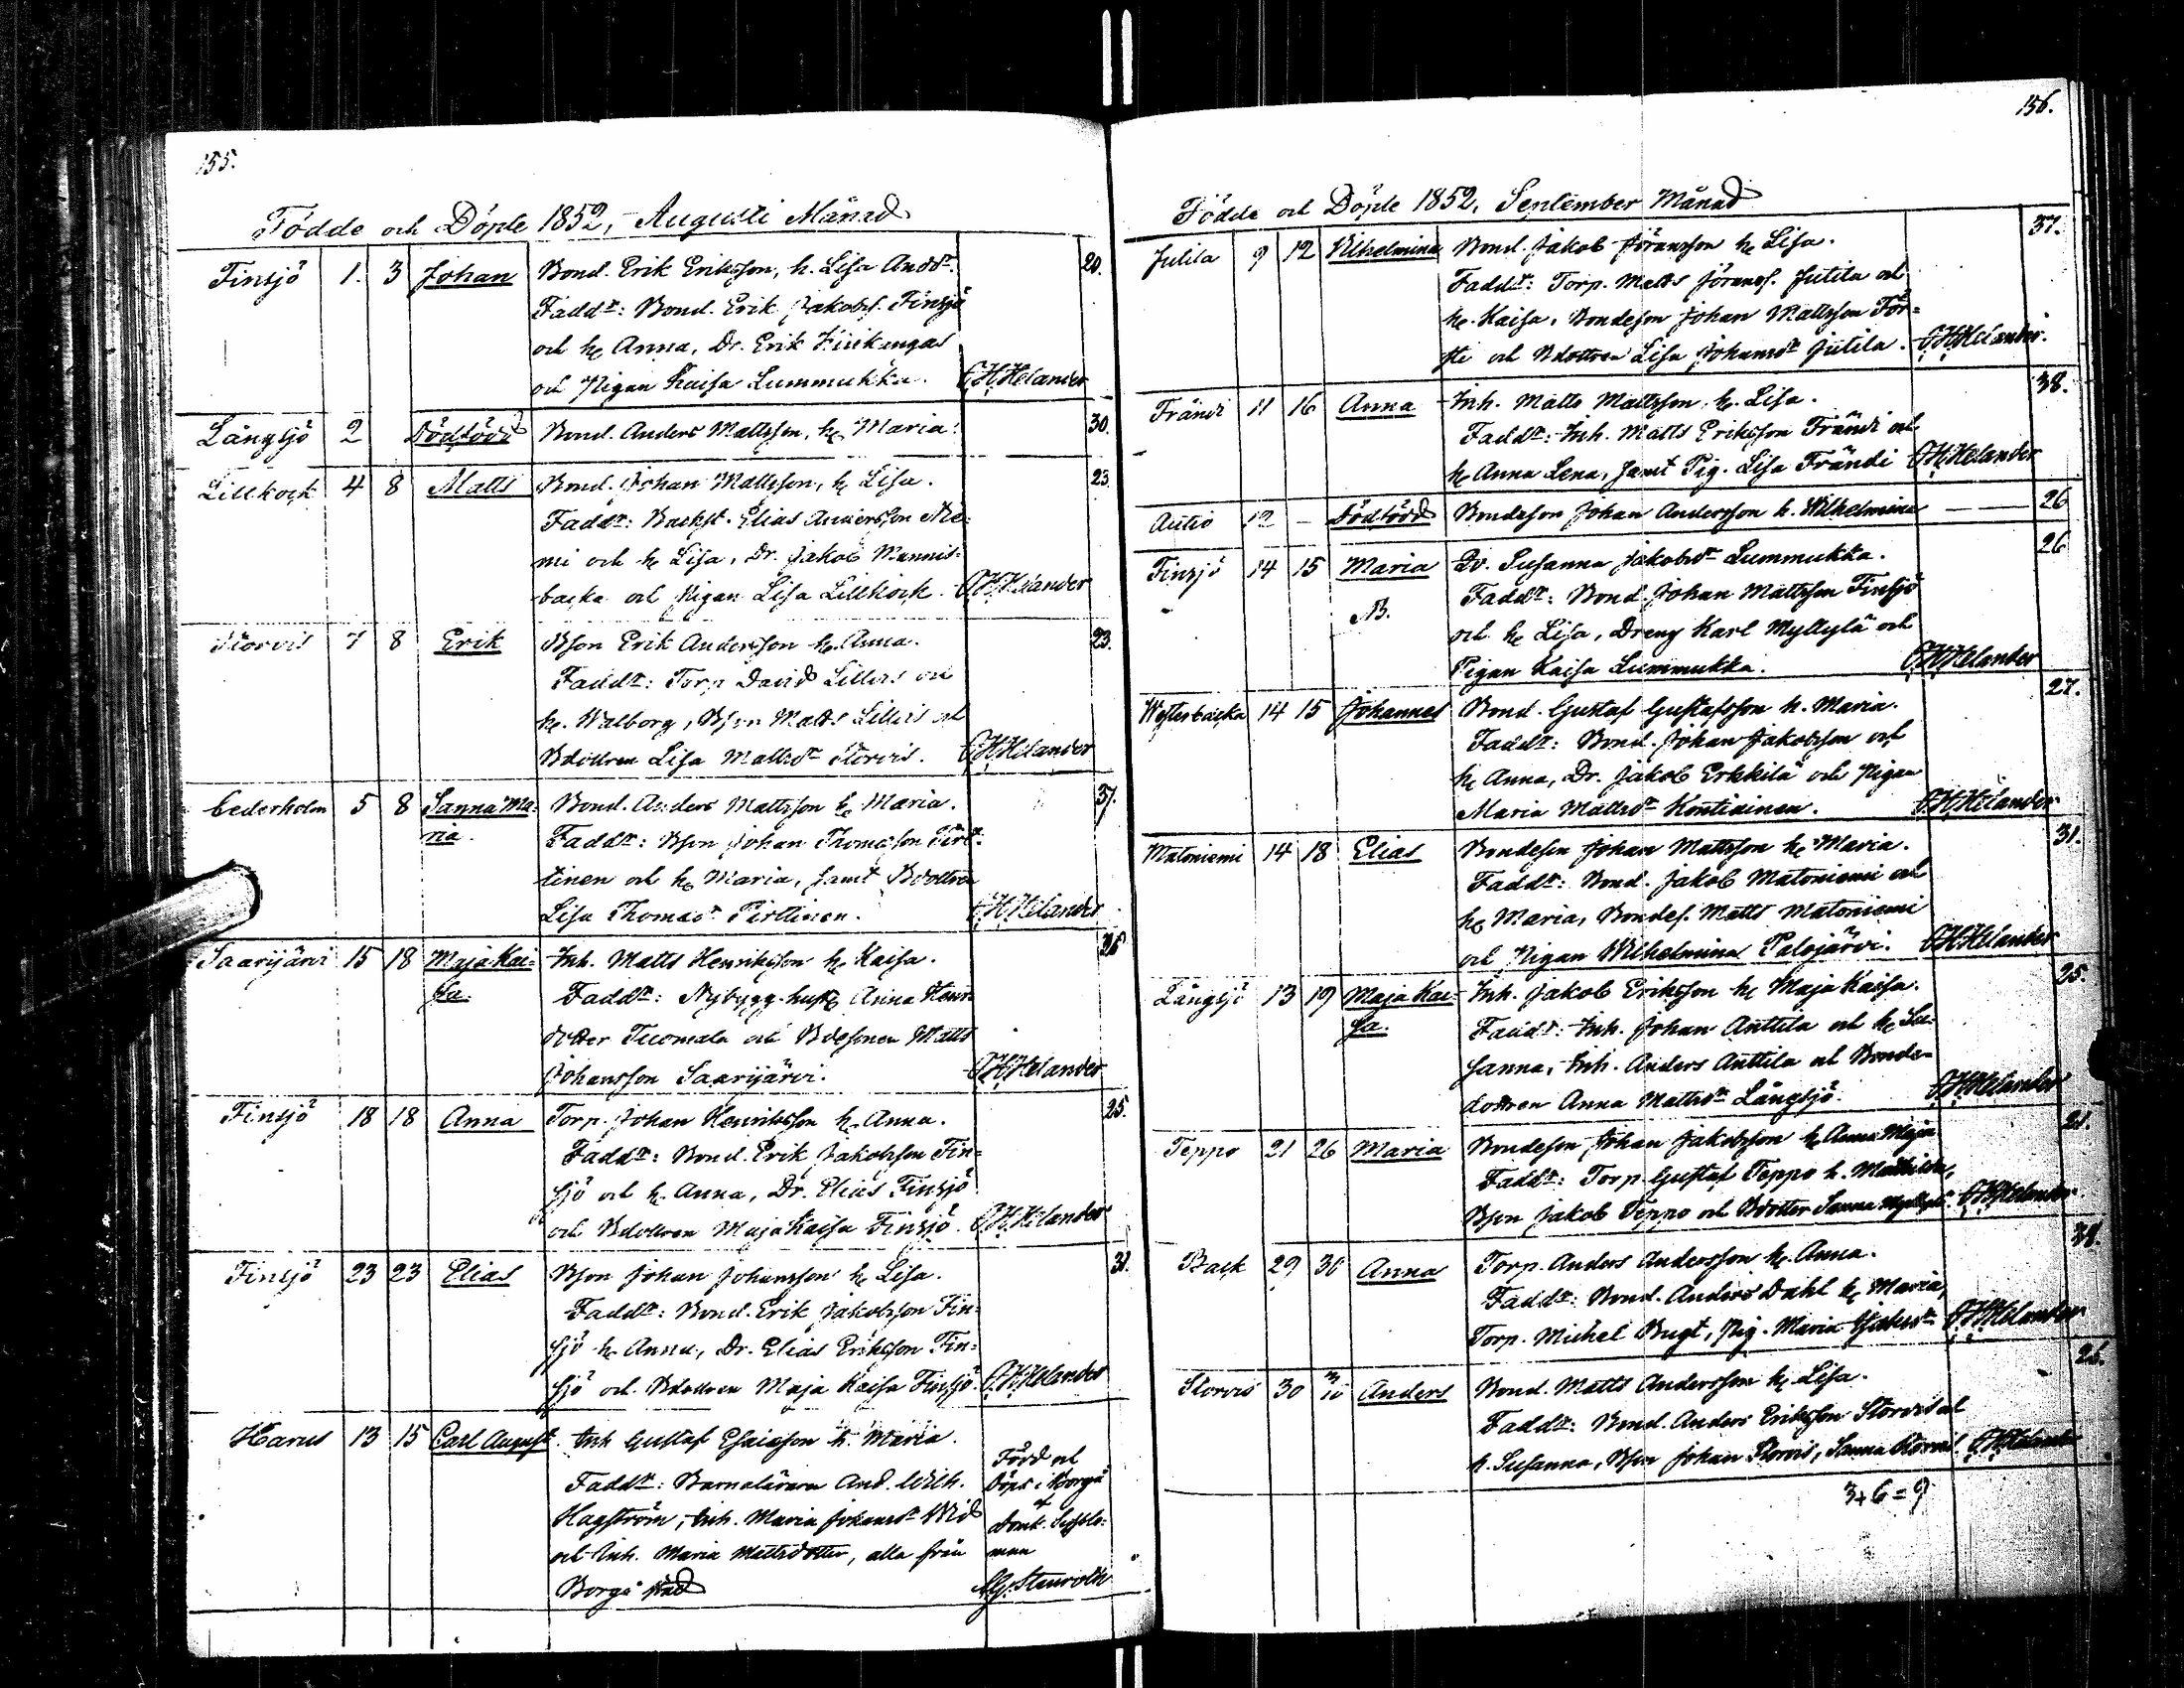 155.
Födde och Döpte 1852, Augusti Månad
Finsjö 1. 3 Johan Bond. Erik Eriksson, h. Lisa Andd:r 20.
Fadd:r: Bond. Erik Jakobs. Finsjö
och h. Anna, Dr. Erik
och Pigan Kaisa Lummukka. C.H.Helander
Långsjö 2 Dödfödd Bond. Anders Mattsson, h. Maria. 30.
Lillkock 4 8 Matts Bond. Johan Mattsson, h. Lisa. 23.
Fadd:r: Backst. Elias Andersson Nie-
mi och h. Lisa, Dr. Jakob Mannis-
backa och Pigan Lisa Lillkock. C.H.Helander
Storvis 7 8 Erik Bson Erik Andersson h. Anna. 23.
Fadd:r: Torp. David Lillvis och
h. Walborg, Bson Matts Lillvis och
Bdottren Lisa Mattsd:r Storvis. C.H.Helander
Cederholm 5 8 Sanna Ma- Bond. Anders Mattsson h. Maria. 37.
ria. Fadd:r: Bson Johan Thomasson Pirt-
tinen och h. Maria, samt Bdottren
Lisa Thomasd:r Pirttinen. C.H.Helander
Saarijärvi 15 18 Maja Kai- Inh. Matts Henriksson h. Kaisa. 36
sa. Fadd:r: Nybygg. hust. Anna Henr.
dotter Tuomala och Bdesonen Matts
Johansson Saarijärvi. C.H.Helander
Finsjö 18 18 Anna Torp. Johan Henriksson h. Anna. 25.
Fadd:r: Bond. Erik Jakobsson Fin-
sjö och h. Anna, Dr. Elias Finsjö
och Bdottren Maja Kaisa Finsjö. C.H.Helander
Finsjö 23 23 Elias Bson Johan Johansson h. Lisa. 31.
Fadd:r: Bond. Erik Jakobsson Fin-
sjö h. Anna, Dr. Elias Eriksson Fin-
sjö och Bdottren Maja Kaisa Finsjö. C.H.Helander
Harus 13 15 Carl August. Inh Gustaf Esaiasson h. Maria. Född och
Fadd:r: Barnaläraren And. Wilh. Döpt i Borgå
Hagström, Inh. Maria Johansd:r Wid Domk.
och Inh. Maria Mattsdotter, alla från man
Borgå stad Stenroth
156.
Födde och Döpte 1852, September Månad
Jutila 9 12 Wilhelmina Bond. Jakob Göransson h. Lisa. 37.
Fadd:r: Torp. Matts Göranss. Jutila och
h. Kaisa, Bondeson Johan Mattsson För-
sti och Bdottren Lisa Johansd:r Jutila. C.H.Helander.
Frändi 11 16 Anna Inh. Matts Mattsson, h. Lisa. 38.
Fadd:r: Inh. Matts Eriksson Frändi och
h. Anna Lena, samt Pig. Lisa Frändi C.H.Helander
Autio 12 - Dödfödd Bondeson Johan Andersson h. Wilhelmina 26
Finsjö 14 15 Maria Dr. Susanna Jakobsd:r Lummukka. 26
B. Fadd:r: Bond. Johan Mattsson Finsjö
och h. Lisa, Dreng Karl Myllylä och
Pigan Kaisa Lummukka. C.H.Helander
Westerbacka 14 15 Johannes Bond. Gustaf Gustafsson h. Maria. 27.
Fadd:r: Bond. Johan Jakobsson och
h. Anna, Dr. Jakob Erkkilä och Pigan
Maria Mattsd:r Kontiainen. C.H.Helander
Matoniemi 14 18 Elias Bondeson Johan Mattsson h. Maria. 31.
Fadd:r: Bond. Jakob Matoniemi och
h. Maria, Bondes. Matts Matoniemi
och Pigan Wilhelmina Palojärvi. C.H.Helander
Långsjö 13 19 Maja Kai- Inh. Jakob Eriksson h. Maja Kaisa. 25.
sa. Fadd:r: Inh. Johan Anttila och h. Su-
sanna, Inh. Anders Anttila och Bonde-
dottren Anna Mattsd:r Långsjö. C.H.Helander
Teppo 21 26 Maria Bondeson Johan Jakobsson h. Anna Maja 21.
Fadd:r: Torp. Gustaf Teppo h. Mathilda,
Bson Jakob Teppo och Bdotter Sanna Myllylä. C.H.Helander
Back 29 30 Anna Torp. Anders Andersson h. Anna.
Fadd:r: Bond. Anders Dahl h. Maria,
Torp. Michel Bugt, Pig. Maria C.H.Helander
Storvis 30 3/10 Anders Bond. Matts Andersson h. Lisa. 26.
Fadd:r: Bond. Anders Eriksson Storvis och
h. Susanna, Bson Johan Storvis, Sanna Storvis. C.H.Helander
3+6=9